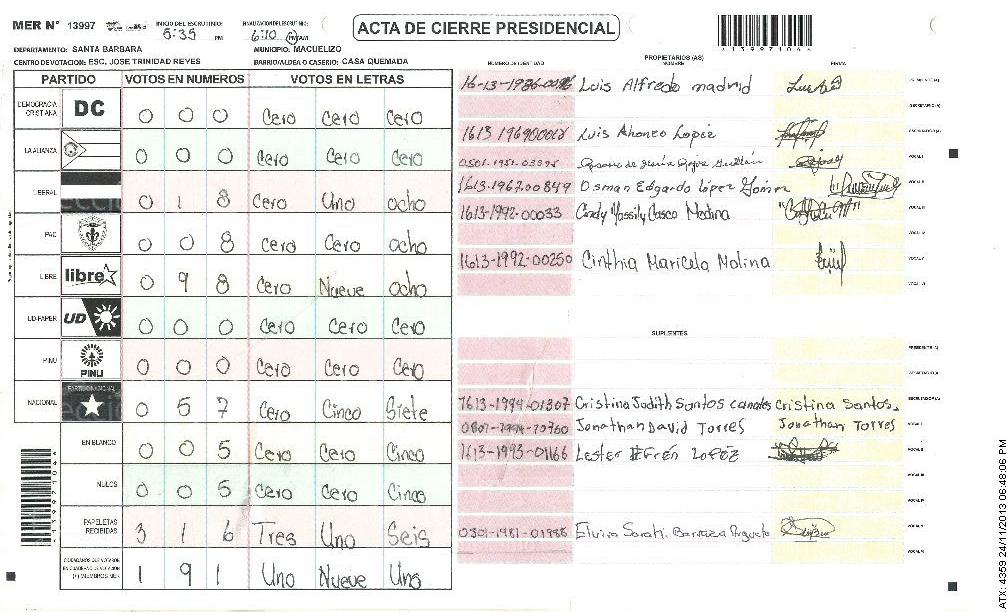 MER N° 13997 INICIO DEL ESCRUTINIO: 5:35 PM FINALIZACION DEL ESCRUTINIO: 6:10 PM/AM ACTA DE CIERRE PRESIDENCIAL
DEPARTAMENTO: SANTA BARBARA MUNICIPIO: MACUELIZO
CENTRO DE VOTACION: ESC. JOSE TRINIDAD REYES BARRIO/ALDEA O CASERIO: CASA QUEMADA
PARTIDO VOTOS EN NUMEROS VOTOS EN LETRAS
DEMOCRACIA CRISTIANA DC 0 0 0 Cero Cero Cero
LA ALIANZA 0 0 0 Cero Cero Cero
LIBERAL 0 1 8 Cero Uno ocho
PAC 0 0 8 Cero Cero ocho
LIBRE libre 0 9 8 Cero Nueve ocho
UD-FAPER UD 0 0 0 Cero Cero Cero
PINU PINU 0 0 0 Cero Cero Cero
NACIONAL PARTIDO NACIONAL 0 5 7 Cero Cinco Siete
EN BLANCO 0 0 5 Cero Cero Cinco
NULOS 0 0 5 Cero Cero Cinco
PAPELETAS RECIBIDAS 3 1 6 Tres Uno Seis
1 9 1 Uno Nueve Uno
PROPIETARIOS (AS)
NUMERO DE IDENTIDAD NOMBRE FIRMA
Luis Alfredo madrid
Luis Alonzo Lopez
1613-1967-00849 Osman Edgardo López
1613-1992-00033 Cindy Yassily Casco Medina
1613-1992-00250 Cinthia Maricela Molina
SUPLENTES
1613-1994-01307 Cristina Judith Santos canales Cristina Santos.
Jonathan David Torres Jonathan Torres
1613-1993-01166 Lester EFRÉN LOPEZ
0501-1981-01988 Elvira Sarahi
ATX: 4359 24/11/2013 06:48:06 PM